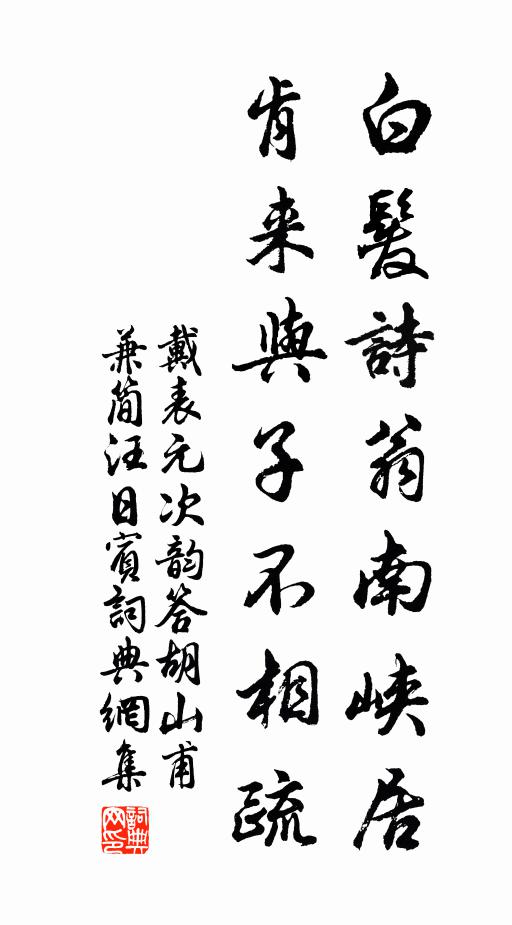 白髮詩翁南峽居
肯来與子不相疏
戴表元次韵答胡山甫
兼简汪日賓詞典網集
詞典网印